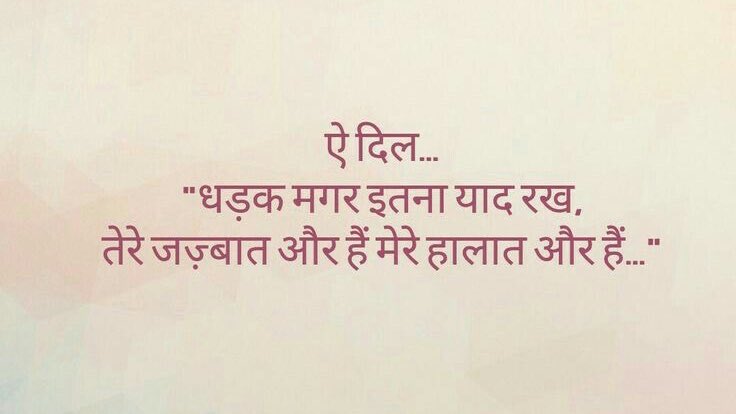 ऐ दिल...
"धड़क मगर इतना याद रख,
तेरे जज़्बात और हैं मेरे हालात और हैं..."